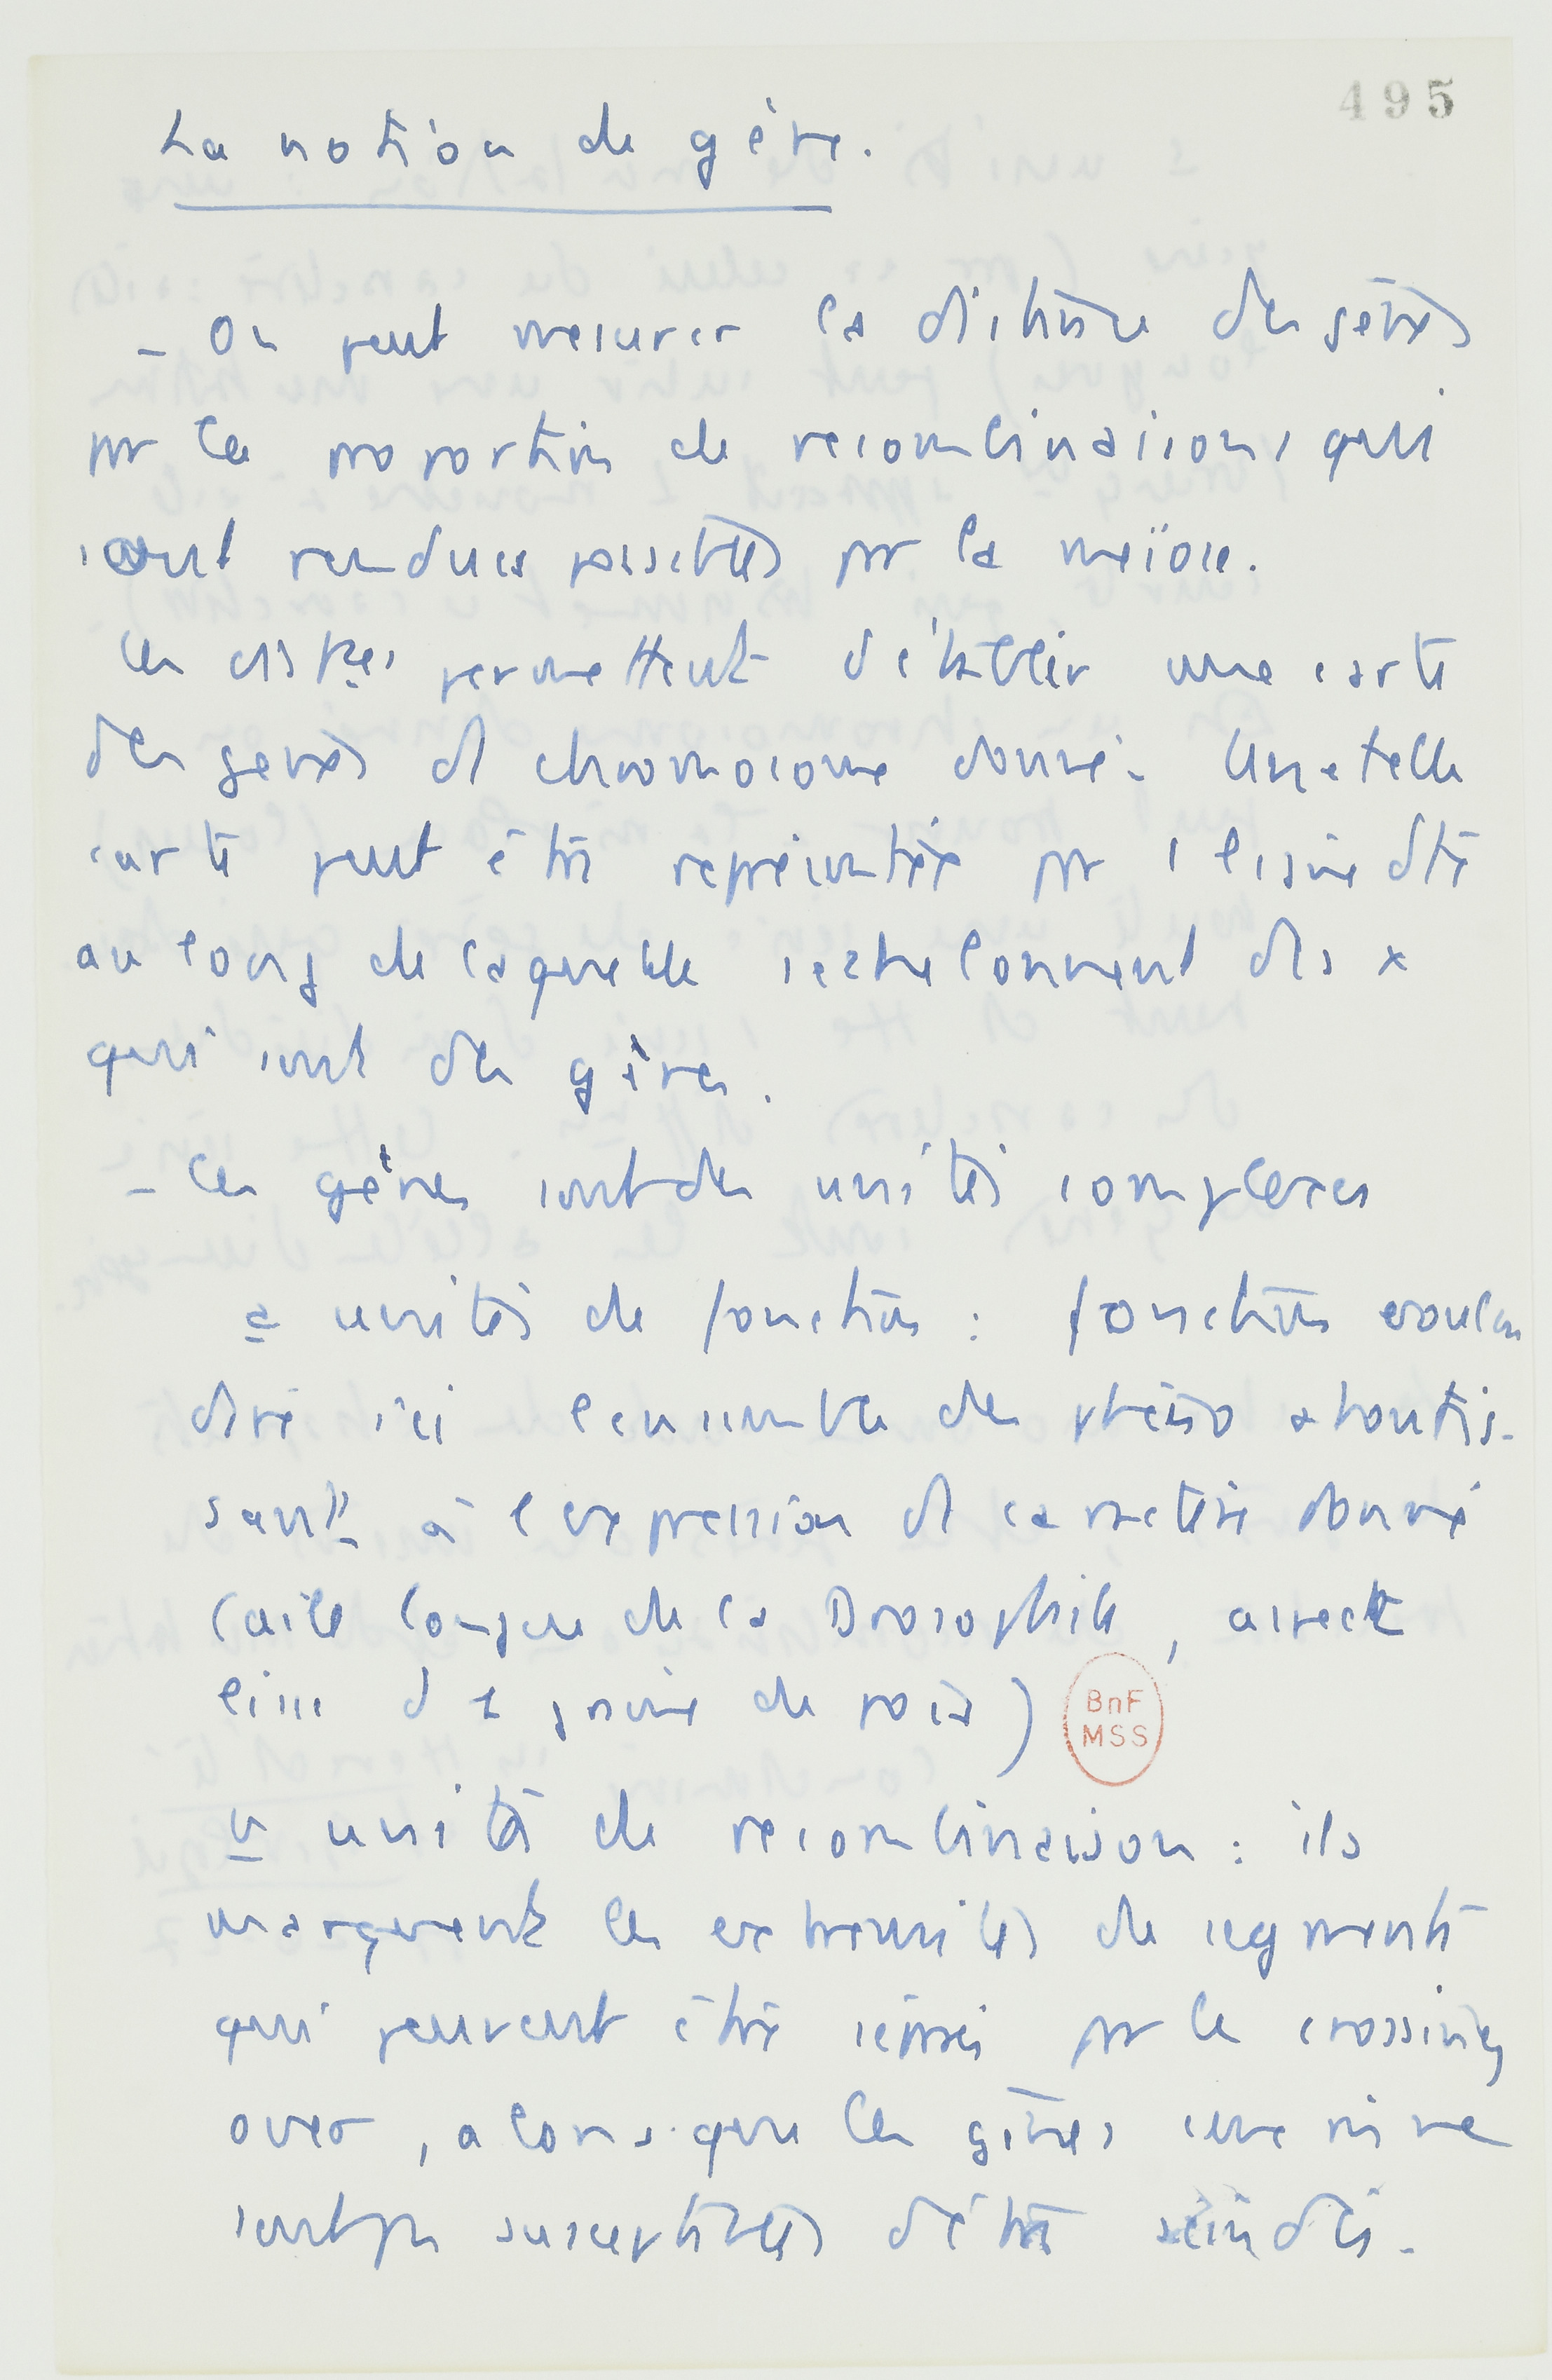 495
La notion de gène.
- On peut mesurer la distance des gènes
par la proportion de recombinaisons qui
sont rendues possibles par la meïose.
Ces permettent d'établir une carte
des gènes d' chromosome donné. Une telle
carte peut être représentée par 1 ligne dte
au long de laquelle s'echelonnent des x
qui sont des gènes.
- Les gènes sont des unités complexes
a unités de fonction : fonction voulant
dire ici l'ensemble des aboutis-
sant à l'expression d' caractère donné
(aile longue de la Drosophile, aspect
lisse d' 1 graine de pois)
BnF
MSS
b unité de recombinaison : ils
marquent les extremités de segments
qui peuvent être séparés par le crossing
over, alors que les gènes eux même
sont pas susceptibles d'être scindés.